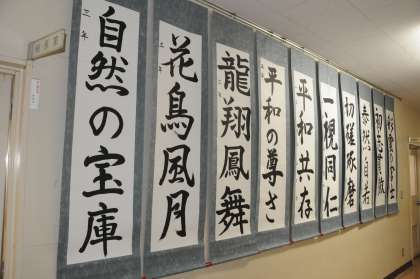 自然の宝庫
三年
花鳥風月
三年
龍翔鳳舞
平和の尊さ
平和共存
一視同仁
切磋琢磨
泰然自若
初志貫徹